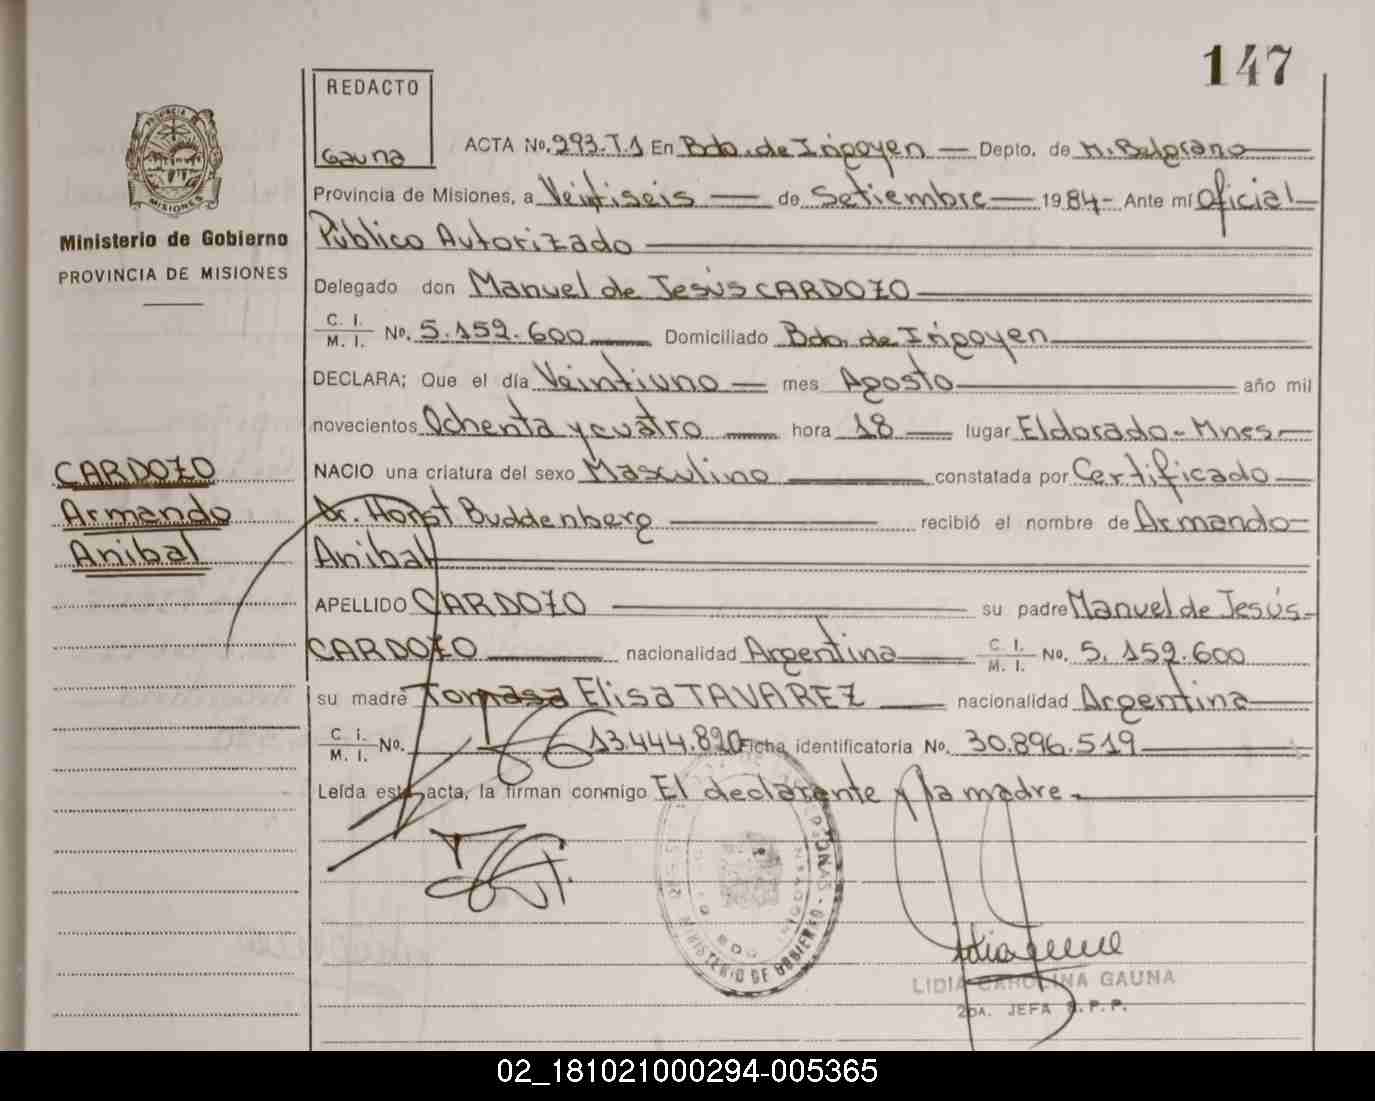 147
REDACTO
Gauna
ACTA No. 293-T.1 En Bdo. de Irigoyen — Depto. de M. Belgrano
Provincia de Misiones, a Veintiseis — de Setiembre — 1984- Ante mí Oficial
Público Autorizado
Ministerio de Gobierno
PROVINCIA DE MISIONES
Delegado don Manuel de Jesús CARDOZO
C. I.
M. I. No. 5.159.600 Domiciliado Bdo. de Irigoyen
DECLARA; Que el día Veintiuno — mes Agosto año mil
novecientos Ochenta y cuatro hora 18 lugar Eldorado - Mnes
NACIO una criatura del sexo Masculino constatada por Certificado
Dr. Horst Buddenberg recibió el nombre de Armando
Anibal
CARDOZO
Armando
Anibal
APELLIDO CARDOZO su padre Manuel de Jesús
CARDOZO nacionalidad Argentina C. I.
M. I. No. 5.159.600
su madre Tomasa Elisa TAVAREZ nacionalidad Argentina
C. I.
M. I. No. 13.444.820 Ficha identificatoria No. 30.896.519
Leída esta acta, la firman conmigo El declarante y la madre.
MINISTERIO DE GOBIERNO
LIDIA CAROLINA GAUNA
2DA. JEFA R.P.P.
02_181021000294-005365